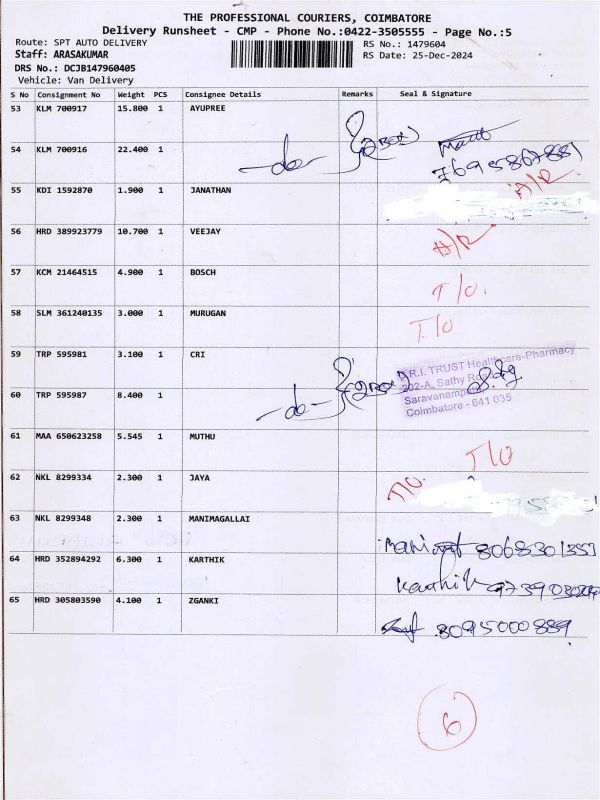 THE PROFESSIONAL COURIERS, COIMBATORE
Delivery Runsheet - CMP - Phone No.:0422-3505555 - Page No.:5
Route: SPT AUTO DELIVERY RS No.: 1479604
Staff: ARASAKUMAR RS Date: 25-Dec-2024
DRS No.: DCJB147960405
Vehicle: Van Delivery
S No Consignment No Weight PCS Consignee Details Remarks Seal & Signature
53 KLM 700917 15.800 1 AYUPREE
54 KLM 700916 22.400 1 -do-
7695867881
55 KDI 1592870 1.900 1 JANATHAN A/R.
56 HRD 389923779 10.700 1 VEEJAY A/R
57 KCM 21464515 4.900 1 BOSCH T/O.
58 SLM 361240135 3.000 1 MURUGAN T/O
59 TRP 595981 3.100 1 CRI
C.R.I. TRUST Healthcare-Pharmacy
202-A, Sathy
Saravanampatti
Coimbatore - 641 035
60 TRP 595987 8.400 1 -do-
61 MAA 650623258 5.545 1 MUTHU T/O
62 NKL 8299334 2.300 1 JAYA T/O.
63 NKL 8299348 2.300 1 MANIMAGALLAI
8068301357
64 HRD 352894292 6.300 1 KARTHIK Karthik
65 HRD 305803590 4.100 1 ZGANKI 8095000889
6